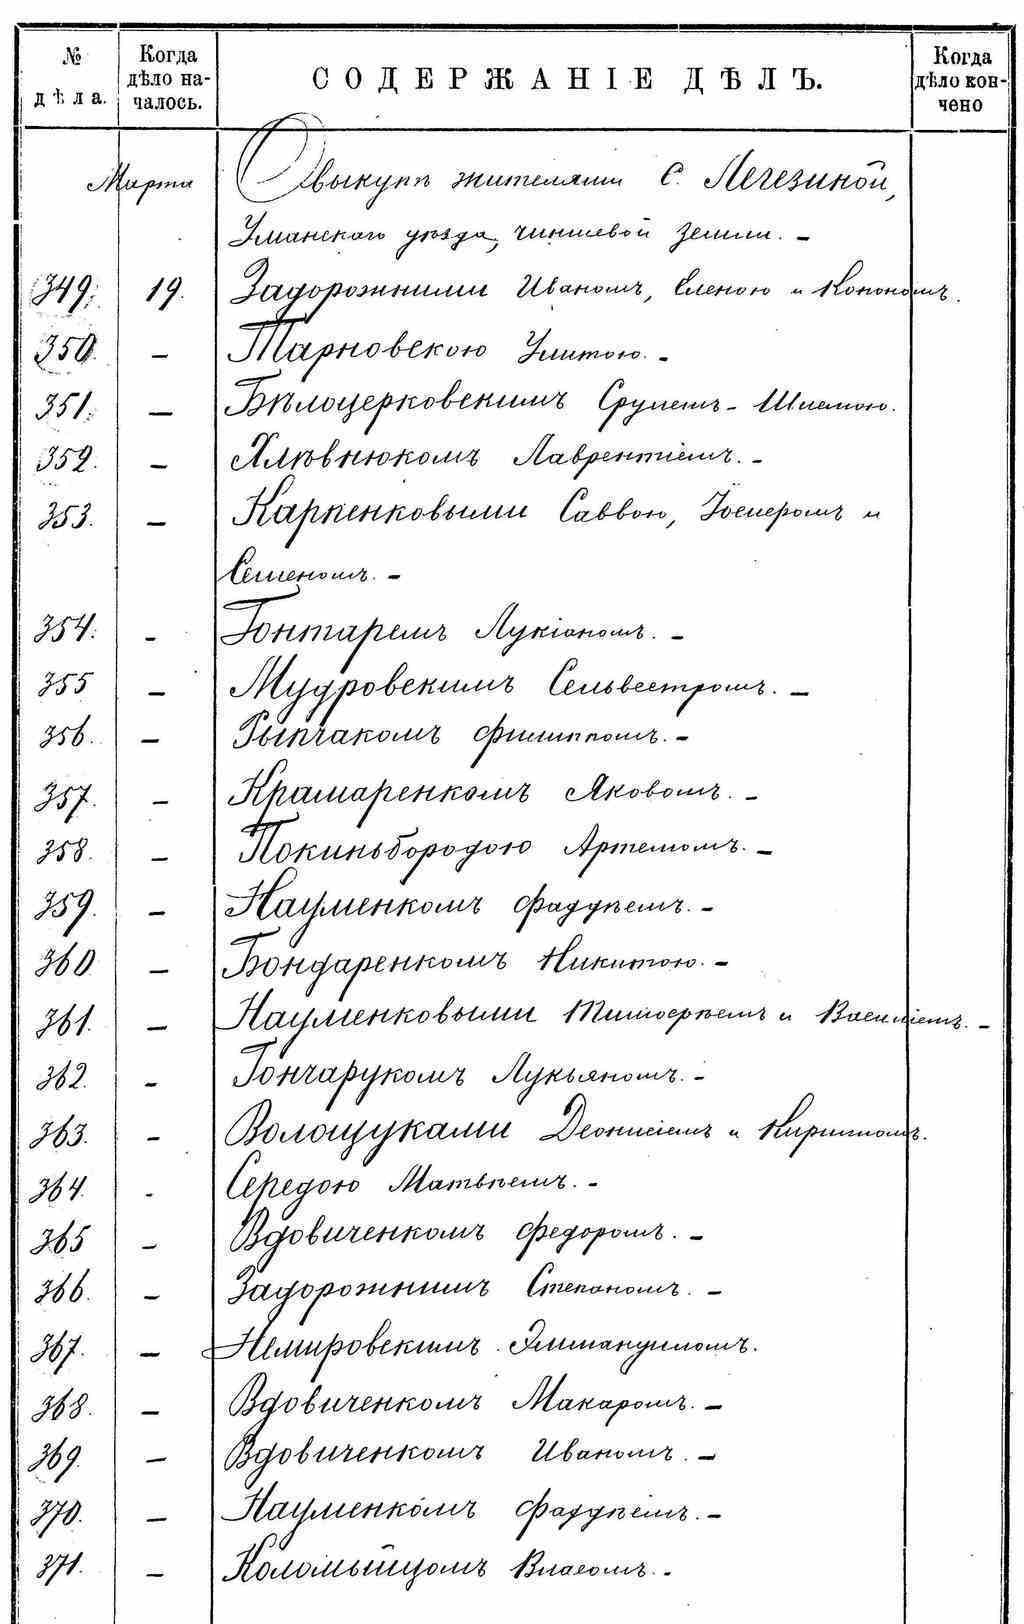 № дѣла. Когда дѣло началось. СОДЕРЖАНІЕ ДѢЛЪ. Когда дѣло кончено
Марта О выкупѣ жителями С. Легезиной,
Уманскаго уѣзда, чиншевой земли. –
349. 19. Задорожними Иваномъ, Еленою и Конономъ.
350. – Тарновскою Улитою. –
351. – Бѣлоцерковскимъ Срулемъ-Шлемою.
352. – Хлѣвнюкомъ Лаврентіемъ. –
353. – Карпенковыми Саввою, и
Семеномъ. –
354. – Гонтаремъ Лукіаномъ. –
355 – Мудровскимъ Сельвестромъ. –
356. – Рыпчакомъ Филиппомъ. –
357. – Крамаренкомъ Яковомъ. –
358. – Покиньбородою Артемомъ. –
359. – Науменкомъ Фаддѣемъ. –
360 – Бондаренкомъ Никитою. –
361. – Науменковыми Тимофѣемъ и Василіемъ. –
362. – Гончарукомъ Лукьяномъ. –
363. – Волощуками Деонисіемъ и Кириломъ.
364. – Середою Матвѣемъ. –
365 – Вдовиченкомъ Федоромъ. –
366. – Задорожнимъ Степаномъ. –
367. – Немировскимъ Эммануиломъ.
368. – Вдовиченкомъ Макаромъ. –
369. – Вдовиченкомъ Иваномъ. –
370. – Науменкомъ Фаддѣемъ. –
371. – Коломыйцомъ Власомъ. –